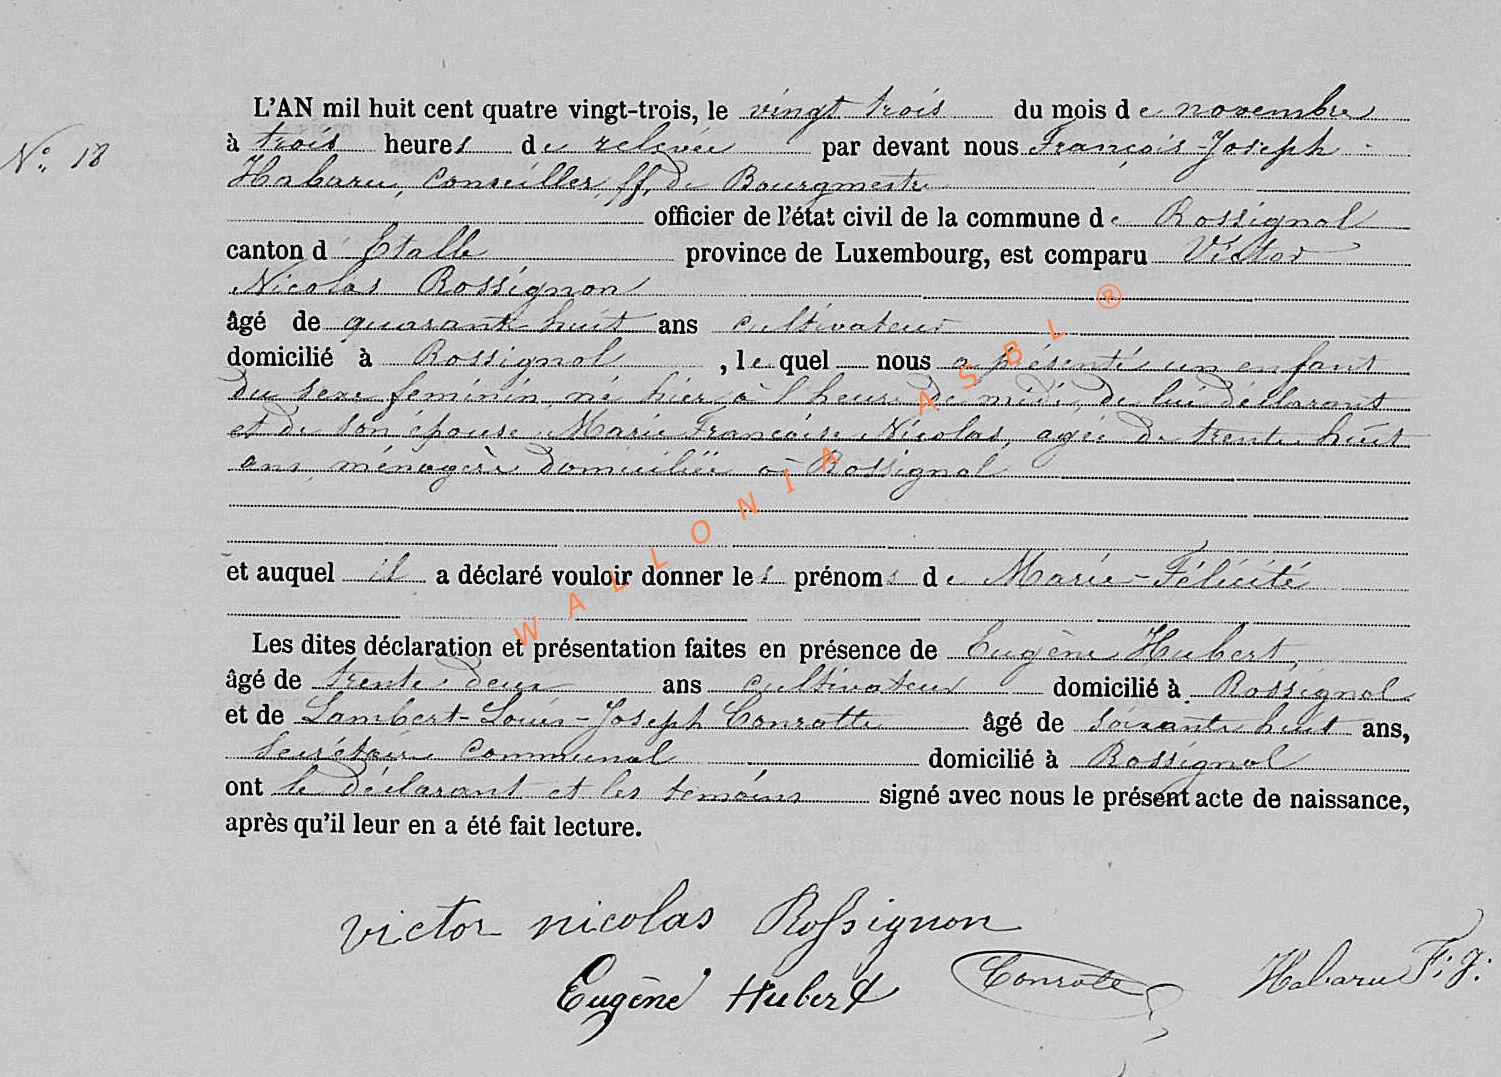 L'AN mil huit cent quatre vingt-trois, le vingt trois du mois de novembre
N° 18
à trois heures de relevée par devant nous François-Joseph
Habaru, Conseiller ff. de Bourgmestre
officier de l'état civil de la commune de Rossignol
canton d Etalle province de Luxembourg, est comparu Victor
Nicolas Rossignon
âgé de quarante huit ans cultivateur
domicilié à Rossignol, lequel nous a présenté un enfant
du sexe féminin, né hier à l'heure de midi, de lui déclarant
et de son épouse Marie Françoise Nicolas, agée de trente huit
ans, ménagère domiciliée à Rossignol
et auquel il a déclaré vouloir donner les prénoms de Marie-Félicité
Les dites déclaration et présentation faites en présence de Eugène Hubert
âgé de trente deux ans cultivateur domicilié à Rossignol
et de Lambert-Louis-Joseph Conrotte âgé de soixante huit ans,
secrétaire communal domicilié à Rossignol
ont le déclarant et les témoins signé avec nous le présent acte de naissance,
après qu'il leur en a été fait lecture.
victor nicolas Rossignon
Eugène Hubert Conrotte Habaru F. J.
WALLONIA ASBL ®